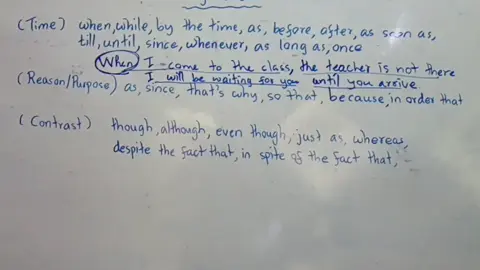 (Time) when, while, by the time, as, before, after, as soon as,
till, until, since, whenever, as long as, once
When I come to the class, the teacher is not there
I will be waiting for you until you arrive
(Reason/Purpose) as, since, that's why, so that, because, in order that
(Contrast) though, although, even though, just as, whereas,
despite the fact that, in spite of the fact that,